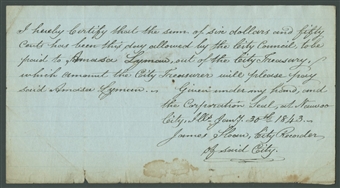 I hereby Certify that the sum of six dollars and fifty
Cents has been this day allowed by the City Council, to be
paid to Amasa Lyman, out of the City Treasury,
which amount the City Treasurer will please pay
said Amasa Lyman. Given under my hand, and
the Corporation Seal, at Nauvoo
City, Ills. Jany. 30th 1843.
James Sloan, City Recorder
of said City.